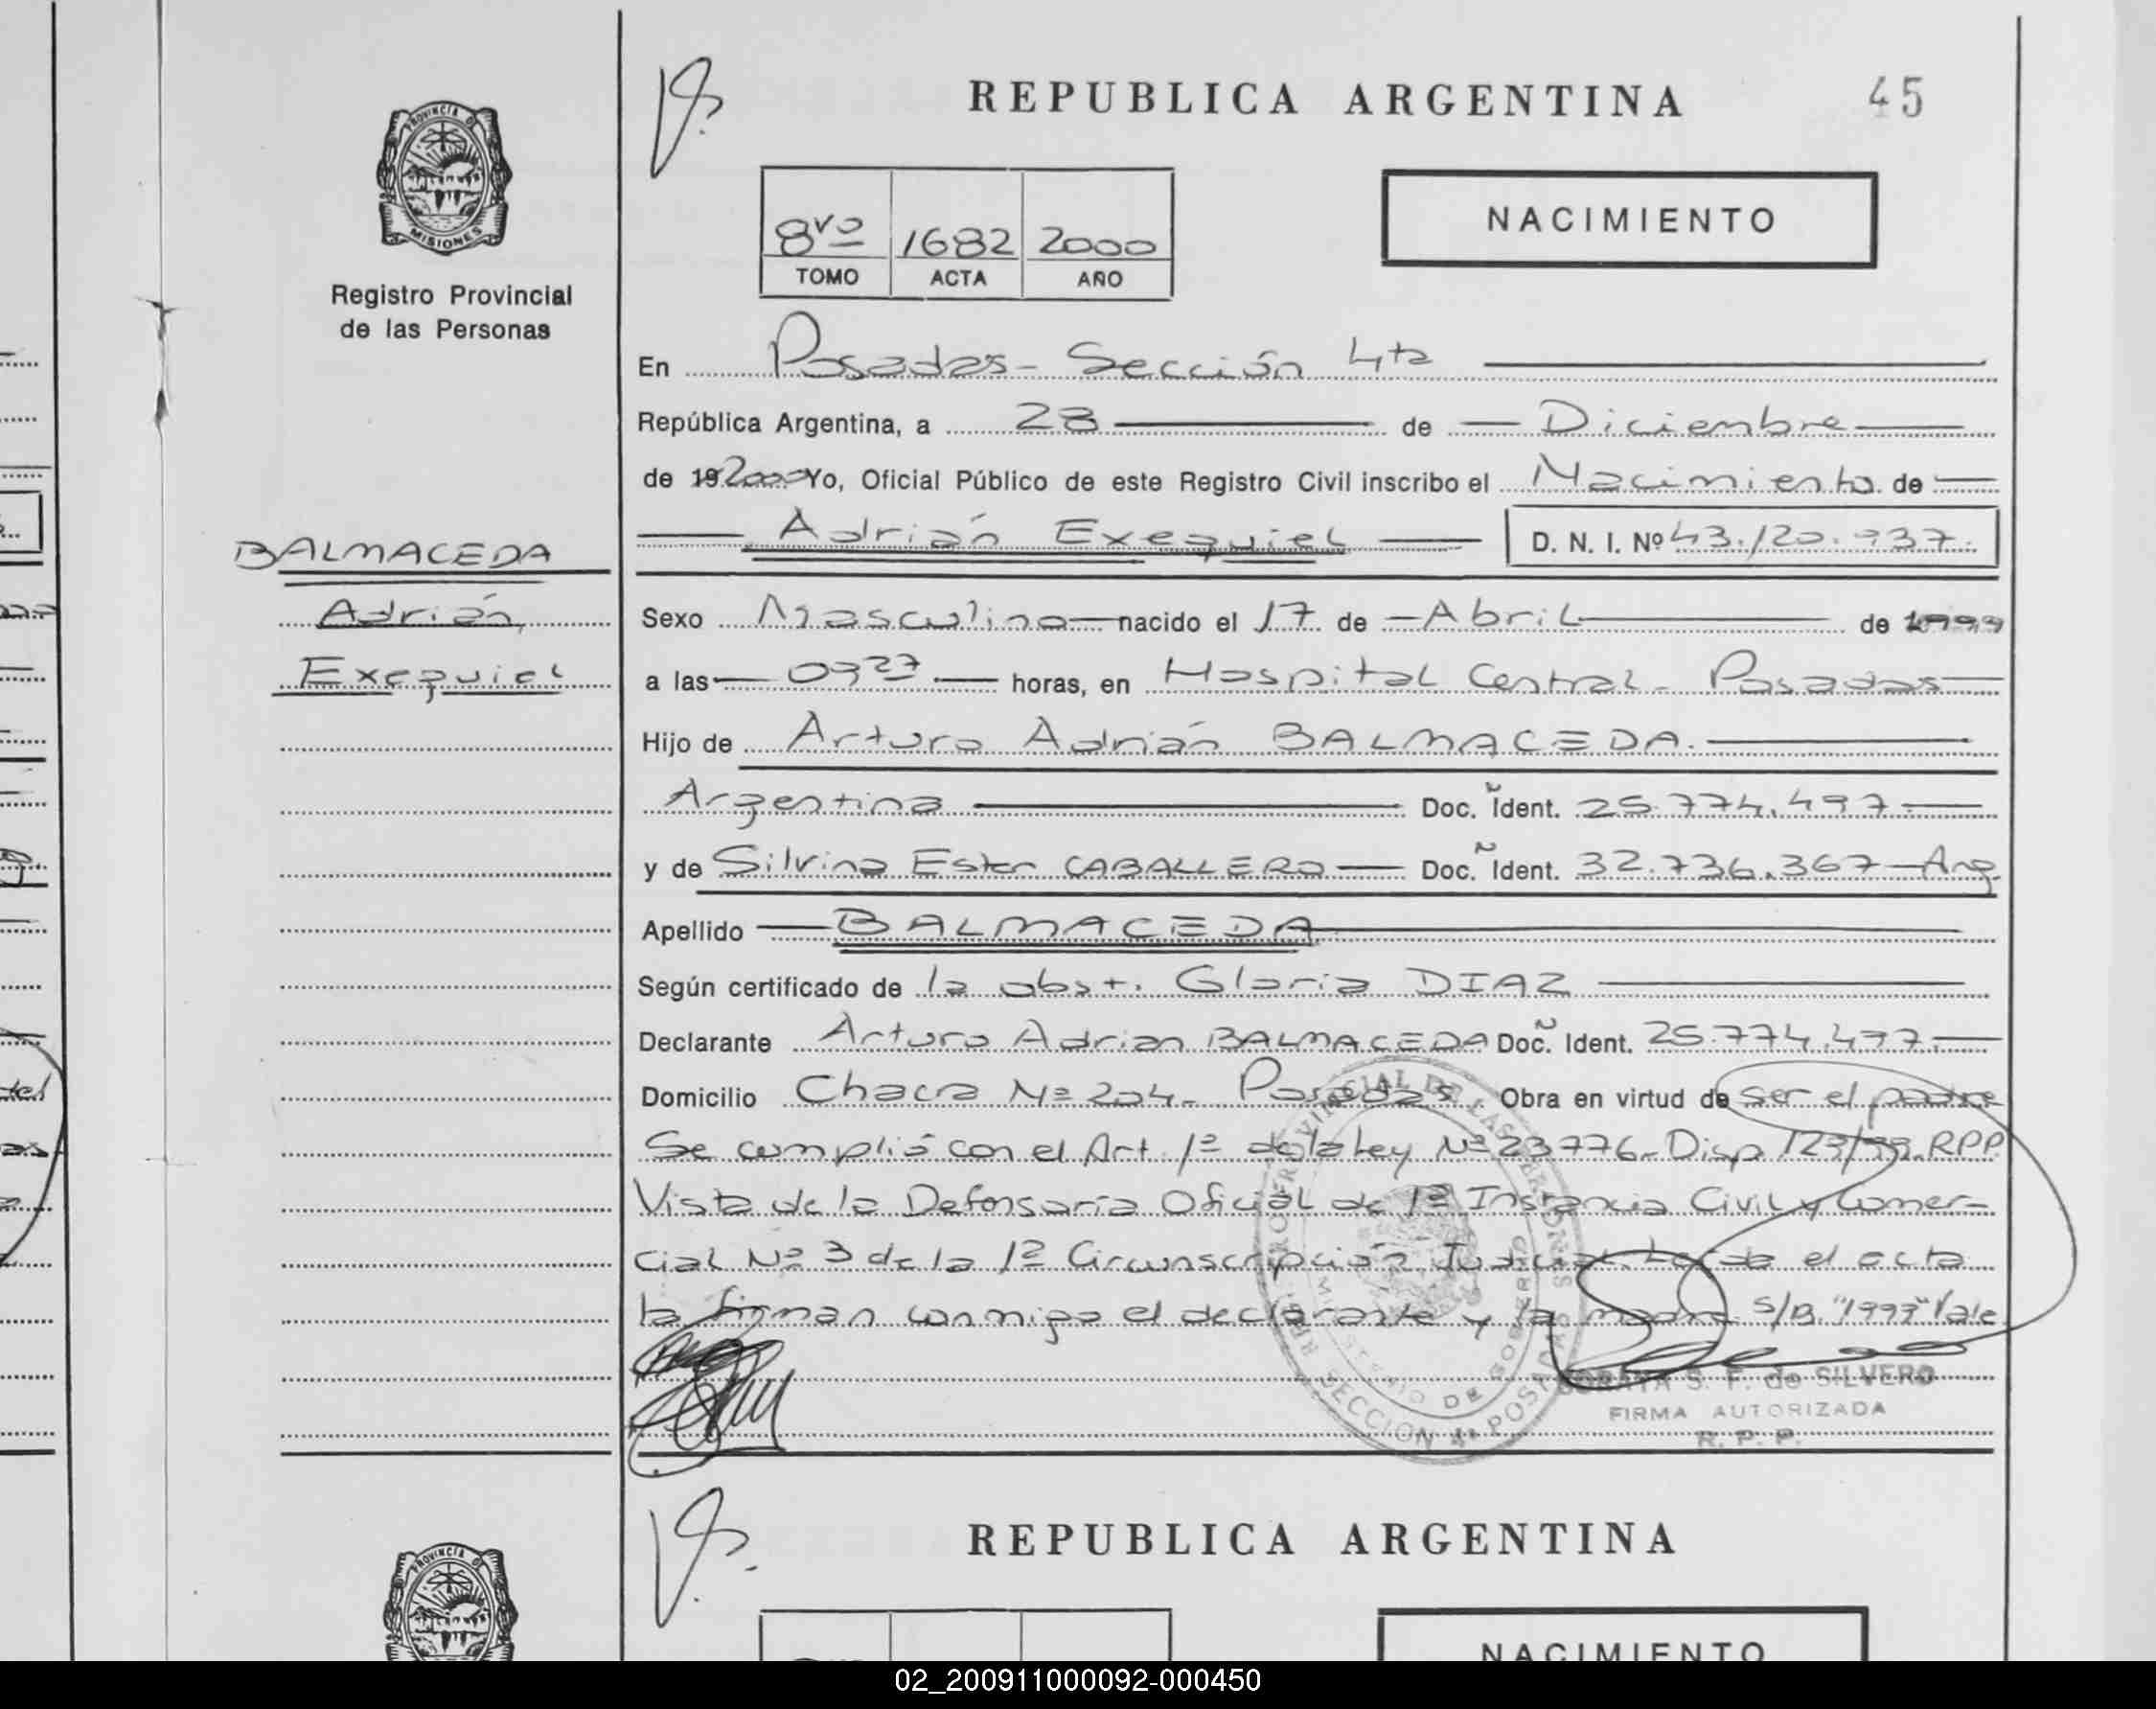 REPUBLICA ARGENTINA 45
PROVINCIA DE
MISIONES
Registro Provincial
de las Personas
8vo 1682 2000
TOMO ACTA AÑO
NACIMIENTO
En Posadas - Sección 4ta
República Argentina, a 28 de Diciembre
de 19 2000 Yo, Oficial Público de este Registro Civil inscribo el Nacimiento de
Adrián Exequiel D. N. I. Nº
BALMACEDA
Adrián,
Exequiel
Sexo Masculino nacido el 17 de Abril de 1999
a las 0927 horas, en Hospital Central - Posadas
Hijo de Arturo Adrián BALMACEDA.
Argentina Doc. Ident. 25.774.497.-
y de Silvina Ester CABALLERO Doc. Ident. 32.736.367 - Arg.
Apellido BALMACEDA
Según certificado de la obst. Gloria DIAZ
Declarante Arturo Adrian BALMACEDA Doc. Ident. 25.774.497.-
Domicilio Chacra Nº 204 - Posadas Obra en virtud de ser el padre
Se cumplió con el Art. 1º de la Ley Nº 23776 - Disp RPP.
Vista de la Defensoría Oficial de 1ª Instancia Civil y Comer-
cial Nº 3 de la 1ª Circunscripción Judicial. el acta
la firman conmigo el declarante y la madre. S/B. "1999" Vale
SORAYA S. F. de SILVERO
FIRMA AUTORIZADA
R. P. P.
REPUBLICA ARGENTINA
PROVINCIA DE
NACIMIENTO
02_200911000092-000450